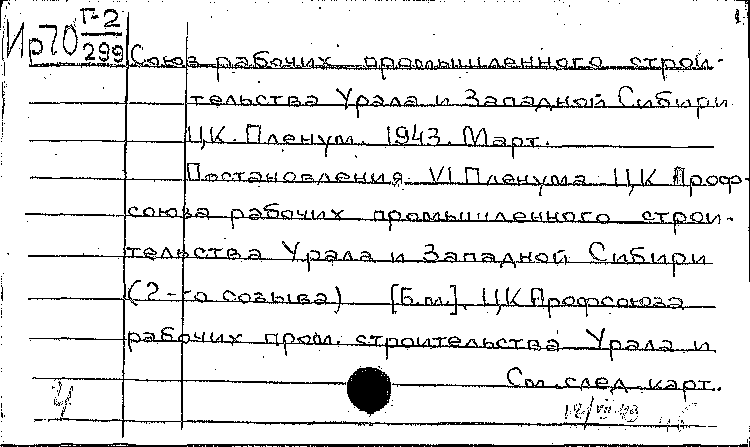 1
Ир70 Г-2/299
Союз рабочих промышленного строи-
тельства Урала и Западной Сибири
ЦК. Пленум. 1943. Март.
Постановления VI Пленума ЦК Проф-
союза рабочих промышленного строи-
тельства Урала и Западной Сибири
(2-го созыва) [Б.м.], ЦК Профсоюза
рабочих пром. строительства Урала и
См. след. карт.